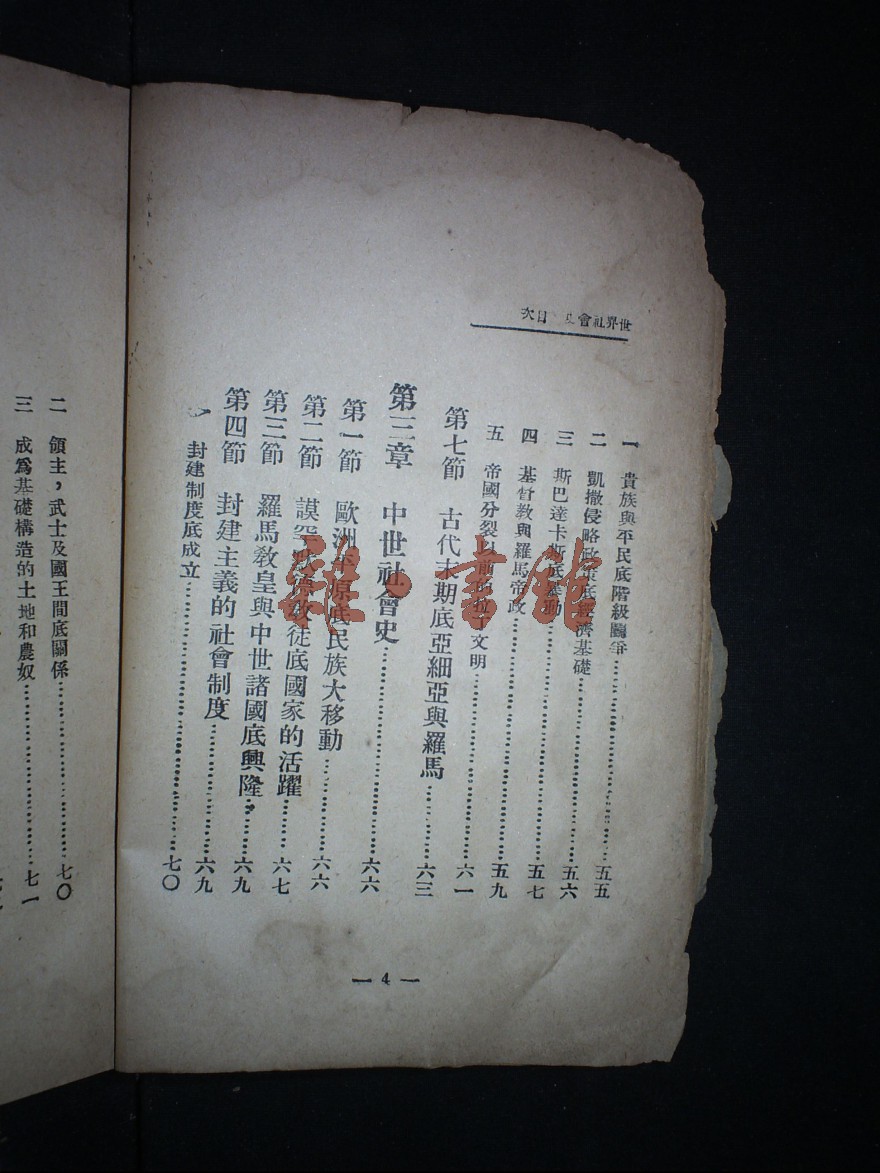 世界社會史 目次
一 貴族與平民底階級鬭爭……五五
二 凱撒侵略政策底經濟基礎……五六
三 斯巴達卡斯底暴動……五七
四 基督教與羅馬帝政……五九
五 帝國分裂以前的拉丁文明……六一
第七節 古代末期底亞細亞與羅馬……六三
第三章 中世社會史……六六
第一節 歐洲平原底民族大移動……六六
第二節 謨罕默德教徒底國家的活躍……六七
第三節 羅馬教皇與中世諸國底興隆……六九
第四節 封建主義的社會制度……六九
封建制度底成立……七〇
— 4 —
二 領主，武士及國王間底關係……七〇
三 成爲基礎構造的土地和農奴……七一
雜·書館